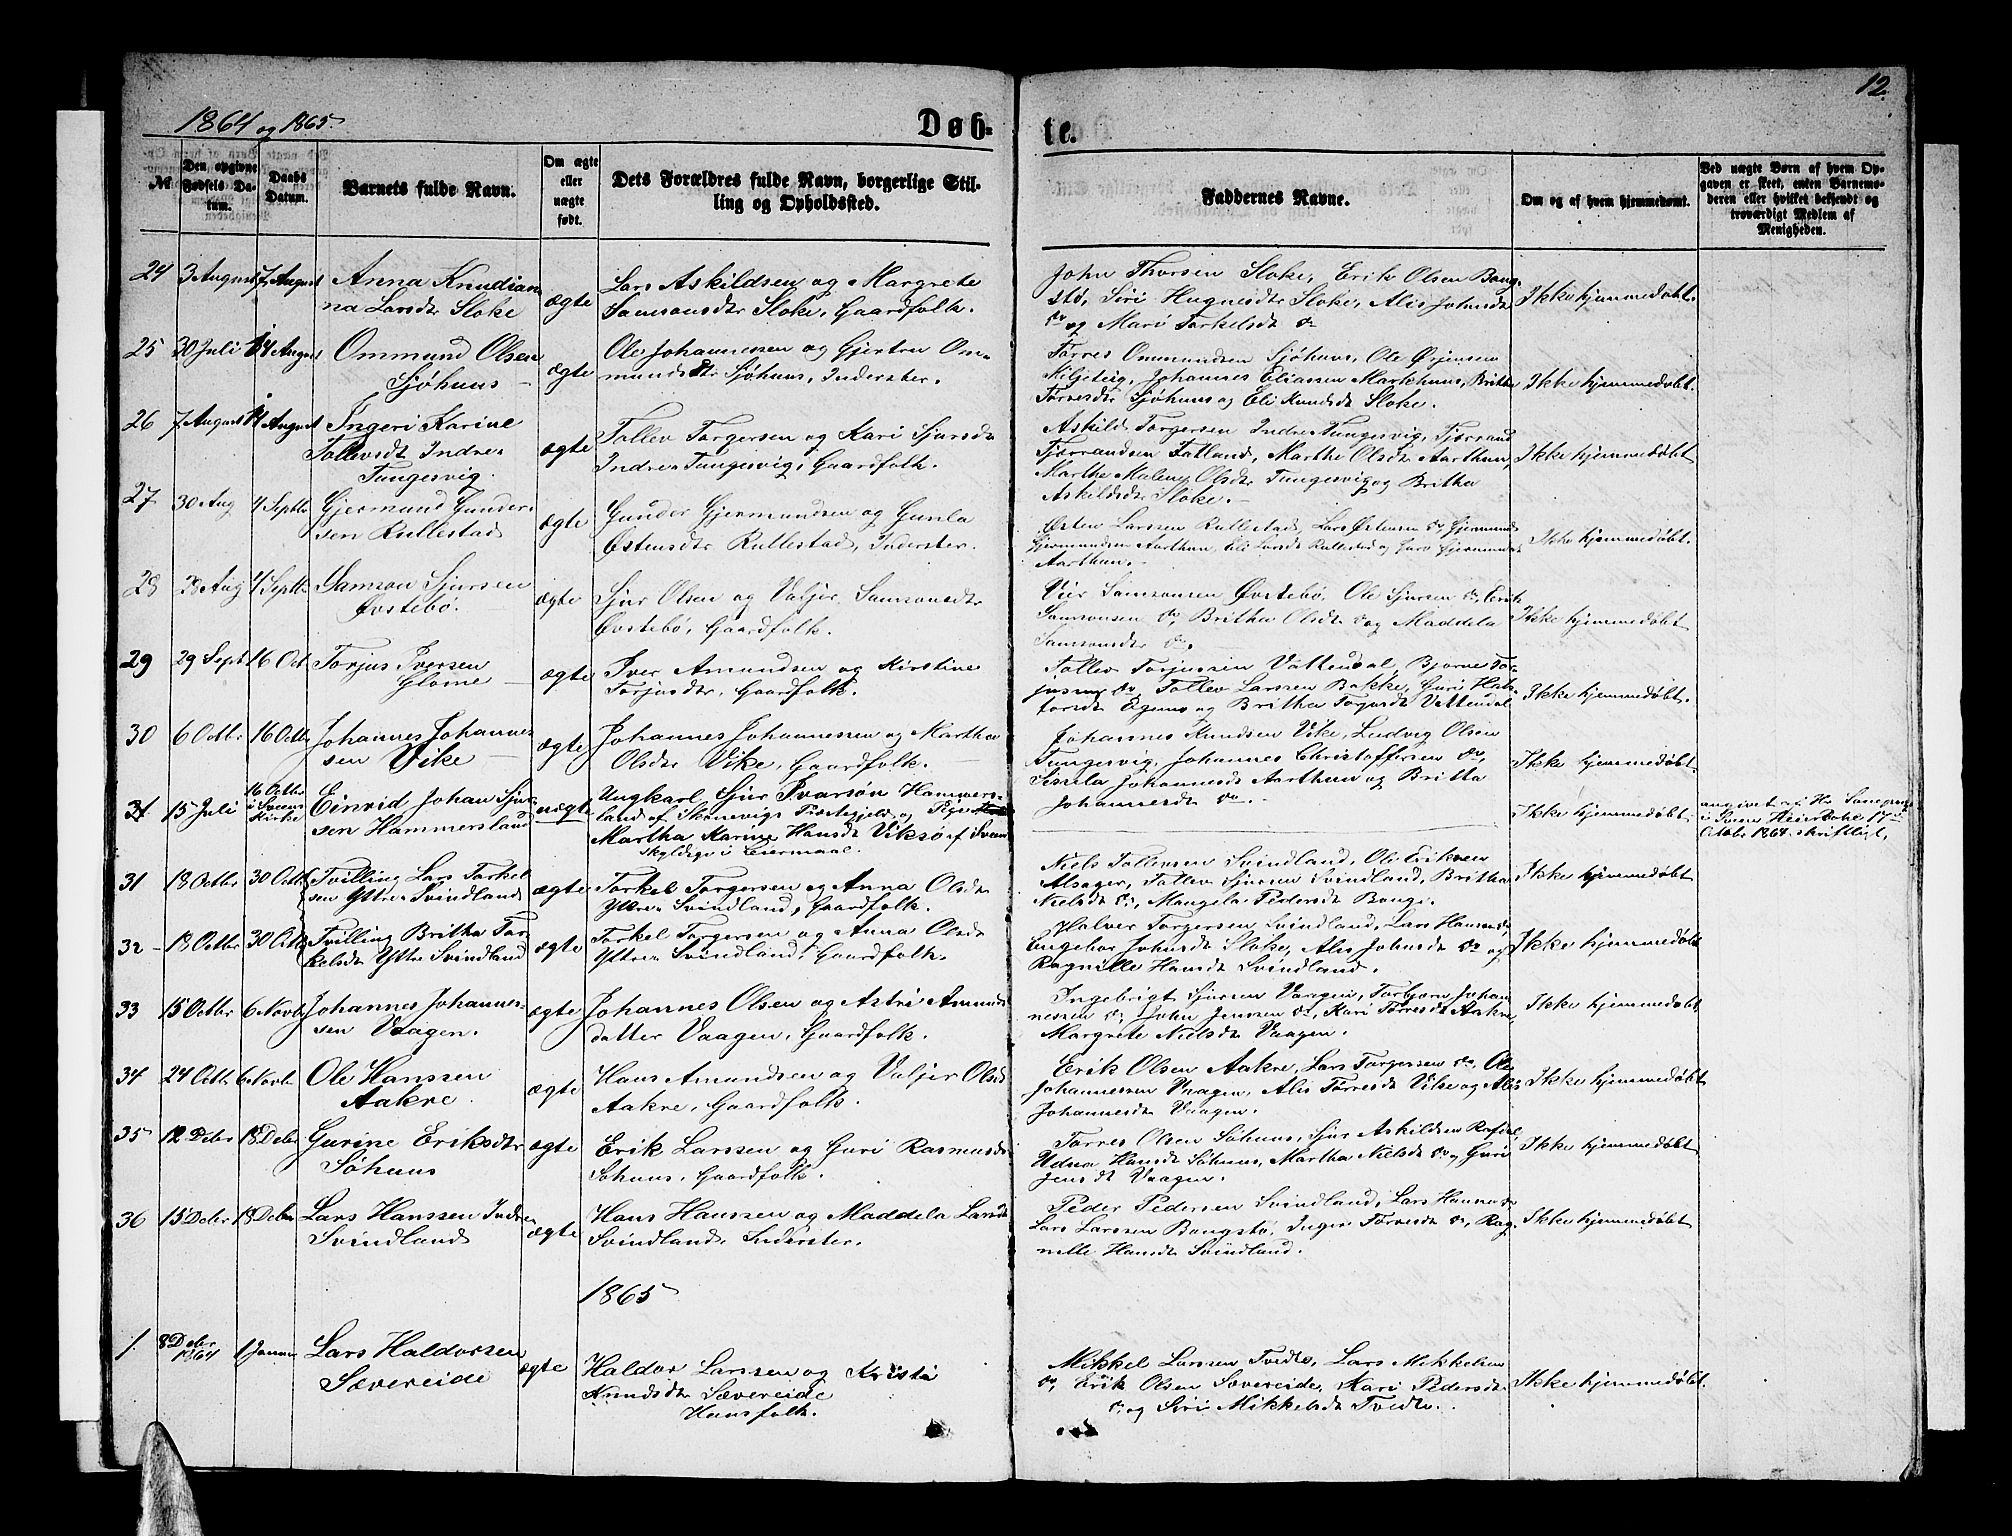 12.
1864 og 1865.
Døb-
te.
№
Den opgivne
Fødsels Da-
tum.
Daabs
Datum.
Barnets fulde Navn.
Om ægte
eller
uægte
født.
Dets Forældres fulde Navn, borgerlige Stil-
ling og Opholdssted.
Faddernes Navne.
Om og af hvem hjemmedøbt.
Ved uægte Børn af hvem Op-
gaven er skeet, enten Barnemo-
deren eller hvilket bekjendt og
troværdigt Medlem af
Menigheden.
24
3 August
7 August
Anna Knudian
na Larsdtr Sloke
ægte
Lars Askildsen og Margrete
Samsonsdtr Sloke, Gaardfolk.
John Thorsen Sloke, Erik Olsen Bong-
stø, Siri Hugnesdtr Sloke, Alis Johnsdtr
do og Mari Torkelsdt do
Ikke hjemmedøbt.
25
30 Juli
14 August
Ommund Olsen
Sjöhuus
ægte
Ole Johannessen og Gjertru Om-
mundsdtr Sjöhuus, Inderster.
Torres Ommundsen Sjöhuus, Ole Örjensen
Miljeteig, Johannes Eliassen Markhuus, Britha
Torresdtr Sjöhuus og Eli Knudsdt Sloke.
Ikke hjemmedøbt.
26
7 August
14 August
Ingeri Karine
Tollevsdt Indre
Tungesvig
ægte
Tollev Torgersen og Kari Sjursdtr
Indre Tungesvig, Gaardfolk.
Askild Torgersen Indre Tungesvig, Tjerrand
Tjerrandsen Fatland, Martha Olsdtr Aarthun,
Marthe Malene Olsdtr Tungesvig og Britha
Askildsdtr Sloke.
Ikke hjemmedøbt
27
30 Aug
4 Septbr
Gjermund Gunder-
sen Rullestad
ægte
Gunder Gjermundsen og Gunla
Östensdtr Rullestad, Inderster.
Østen Larssen Rullestad, Lars Østensen do, Gjermund
Gjermundsen Aarthun, Eli Larsdt Rullestad og Guro Gjermundsdt
Aarthun.
Ikke hjemmedøbt.
28
28 Aug
4 Septbr
Samson Sjursen
Övstebö.
ægte
Sjur Olsen og Valjer Samsonsdtr
Övstebö, Gaardfolk.
Vier Samsonsen Øvstebö, Ole Sjursen do, Erik
Samsonsen do, Britha Olsdt do og Maddela
Samsonsdtr do,
Ikke hjemmedøbt
29
29 Sept
16 Oct
Torjus Iversen
Glome
ægte
Iver Amundsen og Kirstine
Torjusdtr, Gaardfolk.
Tollev Torjussen Vattendal, Bjorne Tor-
jussen do, Tollev Larssen Bakke, Guri Hal-
Ikke hjemmedøbt.
30
6 Octbr
16 Octbr
Johannes Johannes-
sen Vike
ægte
Johannes Johannessen og Martha
Olsdtr Vike, Gaardfolk.
Johannes Knudsen Vike, Ludvig Olsen
Tungesvig, Johannes Christoffersen do,
Sissela Johannesdt Aarthun og Britha
Johannesdt do.
Ikke hjemmedøbt.
15 Juli
16 Octbr
i Sveens
Kirke
Einvid Johan Sjur-
sen Hammersland
uægte
Ungkarl Sjur Ivarsøn Hammers-
land af Skonevigs Præstegjeld og Pige
Martha Karine Hansdt Viksø af Sveen
skyldige i Leiermaal.
Ikke hjemmedøbt.
angivet af Hr. Sogneprest
Octbr 1864. skriftligt,
31
18 Octbr
30 Octbr
Tvilling Lars Torkel
sen Yttre Svindland
ægte
Torkel Torgersen og Anna Olsdtr
Yttre Svindland, Gaardfolk.
Niels Tollevsen Svindland, Ole Eriksen
Alsager, Tollev Sjursen Svindland, Britha
Nielsdt do, Mangela Pedersdt Bonge.
Ikke hjemmedøbt
32
18 Octbr
30 Octbr
Tvilling Britha Tor-
kelsdt Yttre Svindland
ægte
Torkel Torgersen og Anna Olsdtr
Yttre Svindland, Gaardfolk.
Halver Torgersen Svindland, Lars Hansen do,
Engebor Johnsdt Sloke, Alis Johnsdt do og
Ragnille Hansdt Svindland.
Ikke hjemmedøbt
33
15 Octbr
6 Novbr
Johannes Johannes-
sen Vaagen.
ægte
Johannes Olsen og Astri Amunds
datter Vaagen, Gaardfolk.
Ingebrigt Sjursen Vaagen, Torbjorn Johan
nessen do, John Jenssen do, Kari Torresdt Aakre,
Margrete Nielsdt Vaagen.
Ikke hjemmedøbt
34
24 Octbr
6 Novbr
Ole Hanssen
Aakre.
ægte
Hans Amundsen og Valjer Olsdt
Aakre, Gaardfolk.
Erik Olsen Aakre, Lars Torgersen do, Ole
Johannessen Vaagen, Alis Torresdt Vike og Alis
Johannesdt Vaagen.
Ikke hjemmedøbt
35
12 Debr
18 Debr
Gurine Eriksdtr
Söhuus
ægte
Erik Larssen og Guri Rasmusdt
Söhuus, Gaardfolk.
Torres Olsen Söhuus, Sjur Askildsen
Udna Hansdt Söhuus, Martha Nielsdt do og Guri
Jensdt Vaagen.
Ikke hjemmedøbt
36
15 Debr
18 Debr
Lars Hanssen Indre
Svindland
ægte
Hans Hanssen og Maddela Larsdt
Svindland, Inderster.
Peder Pedersen Svindland, Lars Hansen do
Lars Larssen Bongstø, Inger Torresdt do, Rag
nille Hansdt Svindland.
Ikke hjemmedøbt
1865
1.
8 Debr
1864
1 Januar
Lars Haldorsen
Sævereide
ægte
Haldor Larssen og Kristi
Knudsdt Sævereide
Huusfolk.
Mikkel Larssen Tvedte, Lars Mikkelsen
do, Erik Olsen Sævereide, Kari Pedersdt
do og Siri Mikkelsdt Tvedte.
Ikke hjemmedøbt.